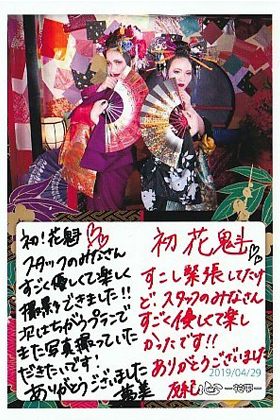 初！花魁
スタッフのみなさん
すごく優しくて楽しく
撮影できました!!
次はちがうプランで
また写真撮っていた
だきたいです！
ありがとうございました
初花魁
すこし緊張してたけ
ど、スタッフのみなさん
すごく優しくて楽し
かったです!!
ありがとうございました
2019/04/29